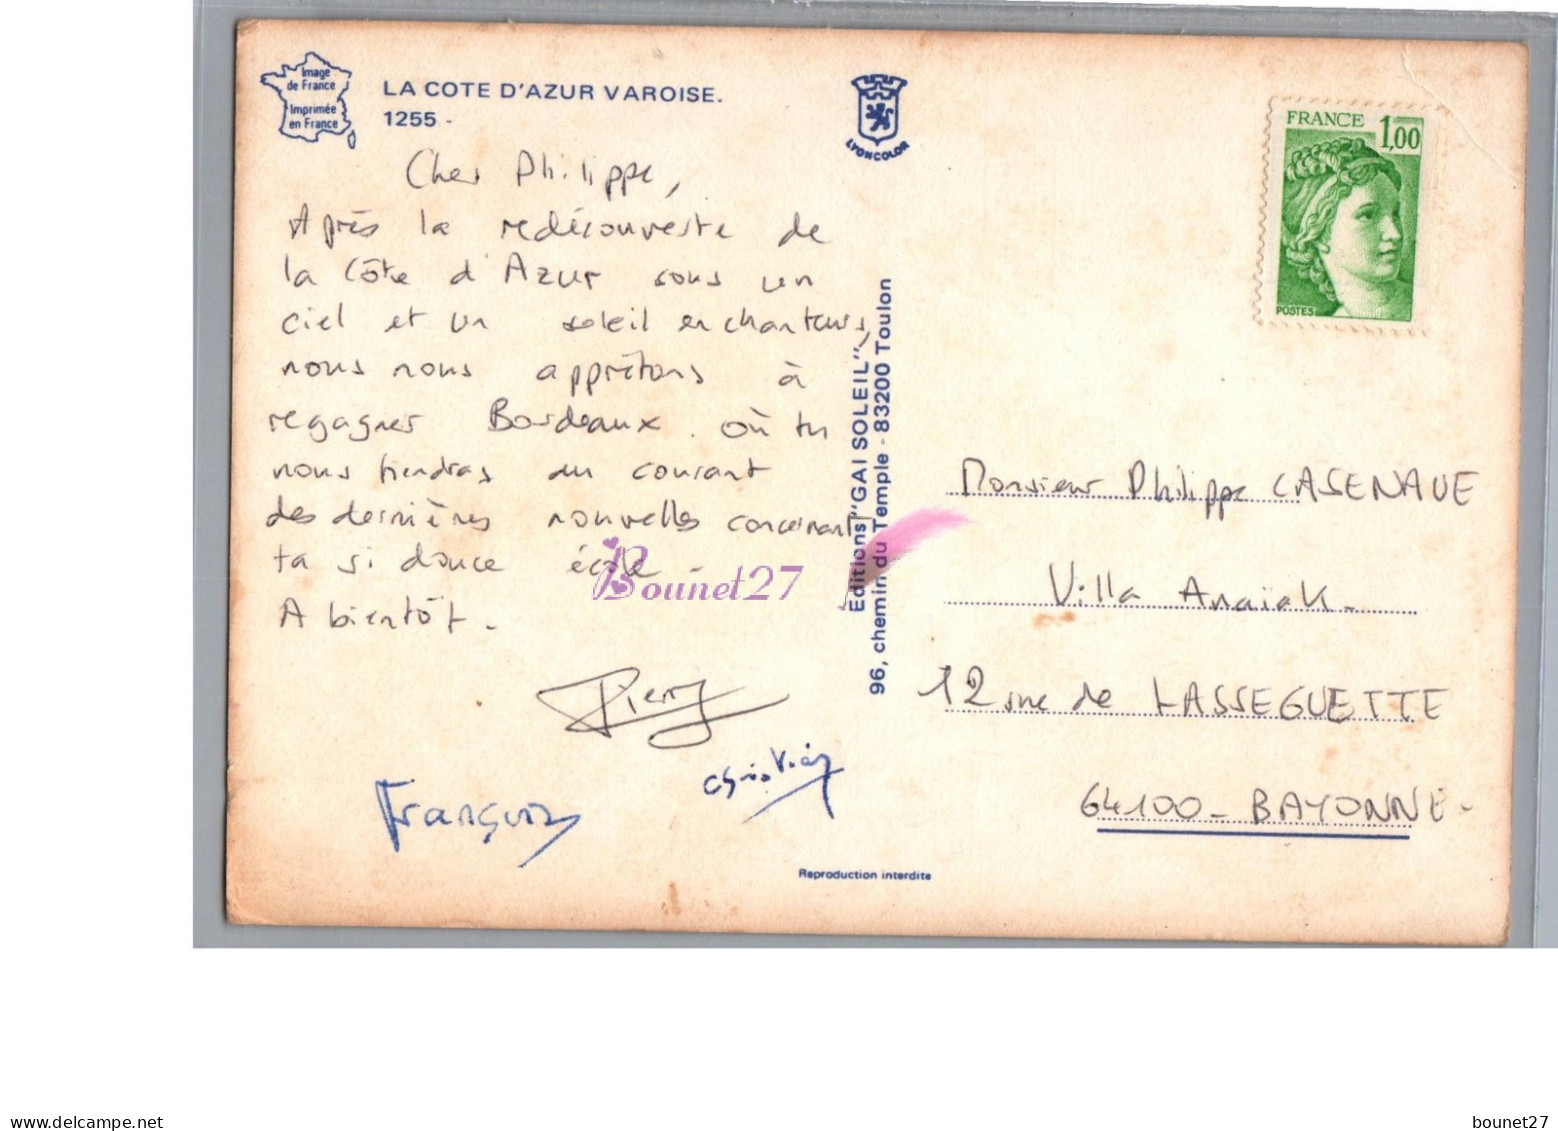 Image
de France
Imprimée
en France
LA COTE D'AZUR VAROISE.
1255 -
LYONCOLOR
FRANCE 1,00
POSTES
Cher Philippe,
Après la redécouverte de
la Côte d'Azur sous un
ciel et un soleil enchanteurs,
nous nous apprêtons à
regagner Bordeaux où tu
nous tiendras au courant
des dernières nouvelles concernant
ta si douce école -
A bientôt -
Pierry
Christian
François
Editions "GAI SOLEIL",
96, chemin du Temple - 83200 Toulon
Monsieur Philippe CASENAVE
Villa Anaïak -
12 rue de LASSEGUETTE
64100 - BAYONNE -
Reproduction interdite
Bounet27
www.delcampe.net
bounet27